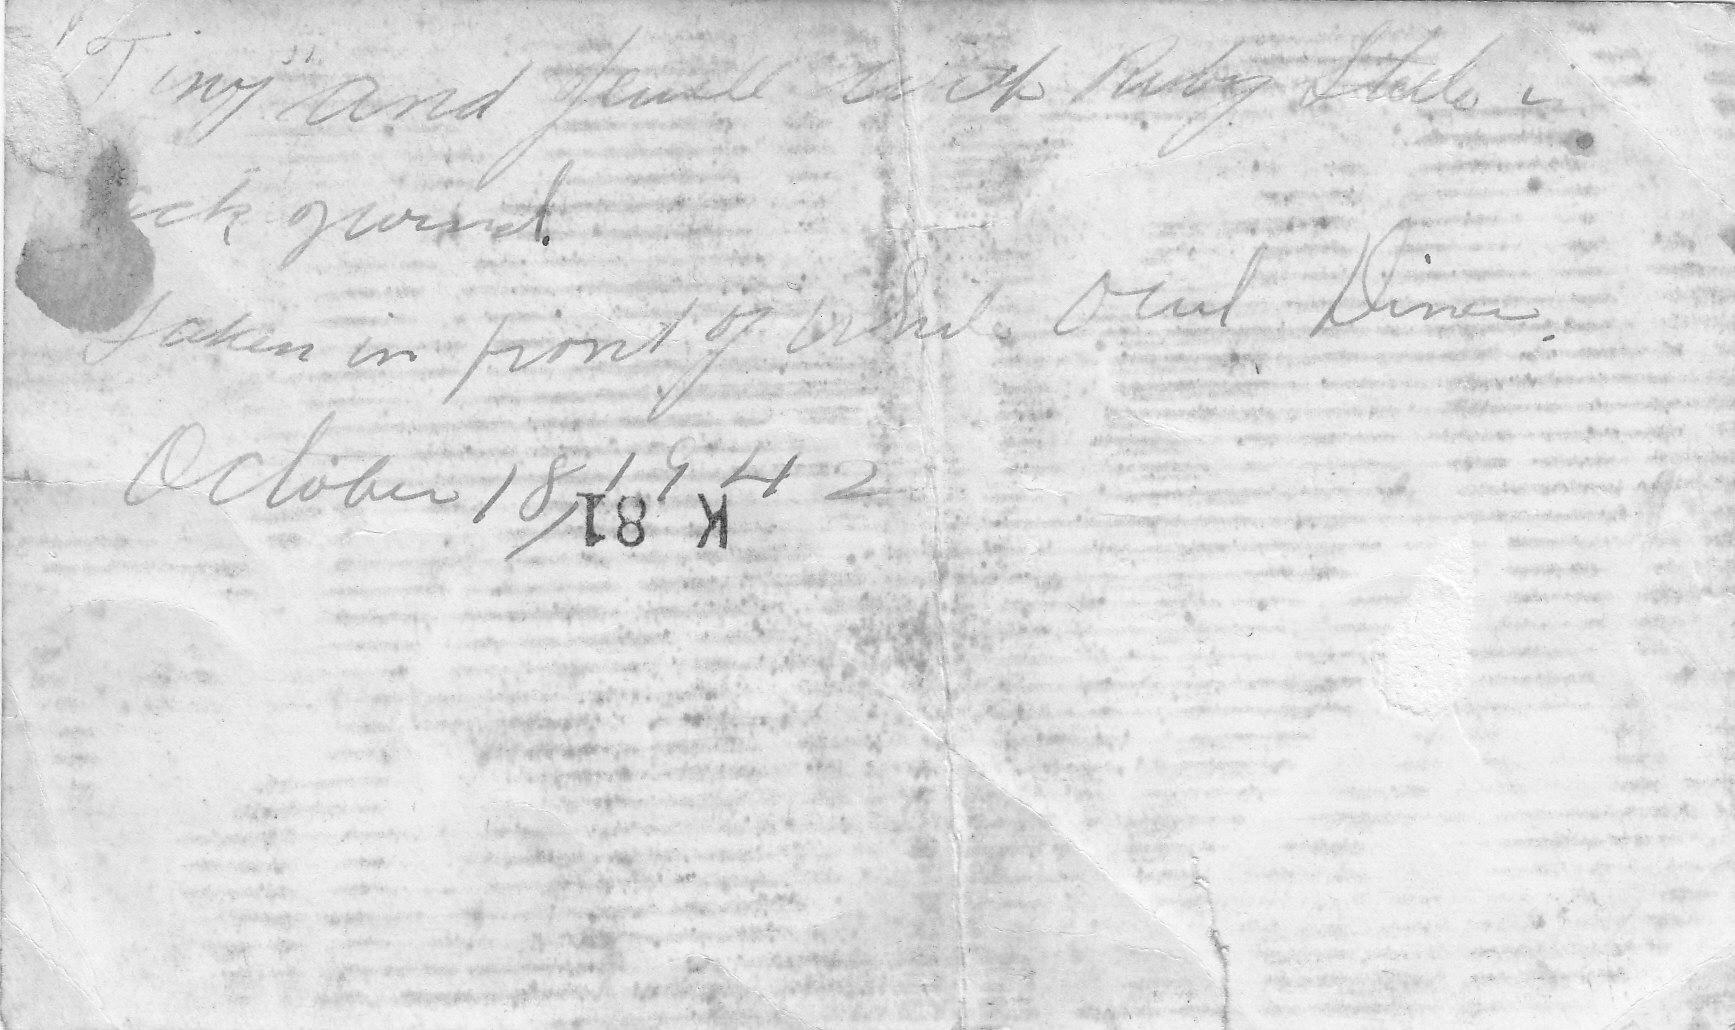 "Tiny" and Jewell with Ruby Steele in
ck ground.
Taken in front of White Owl Diner.
October 18/1942
K 81